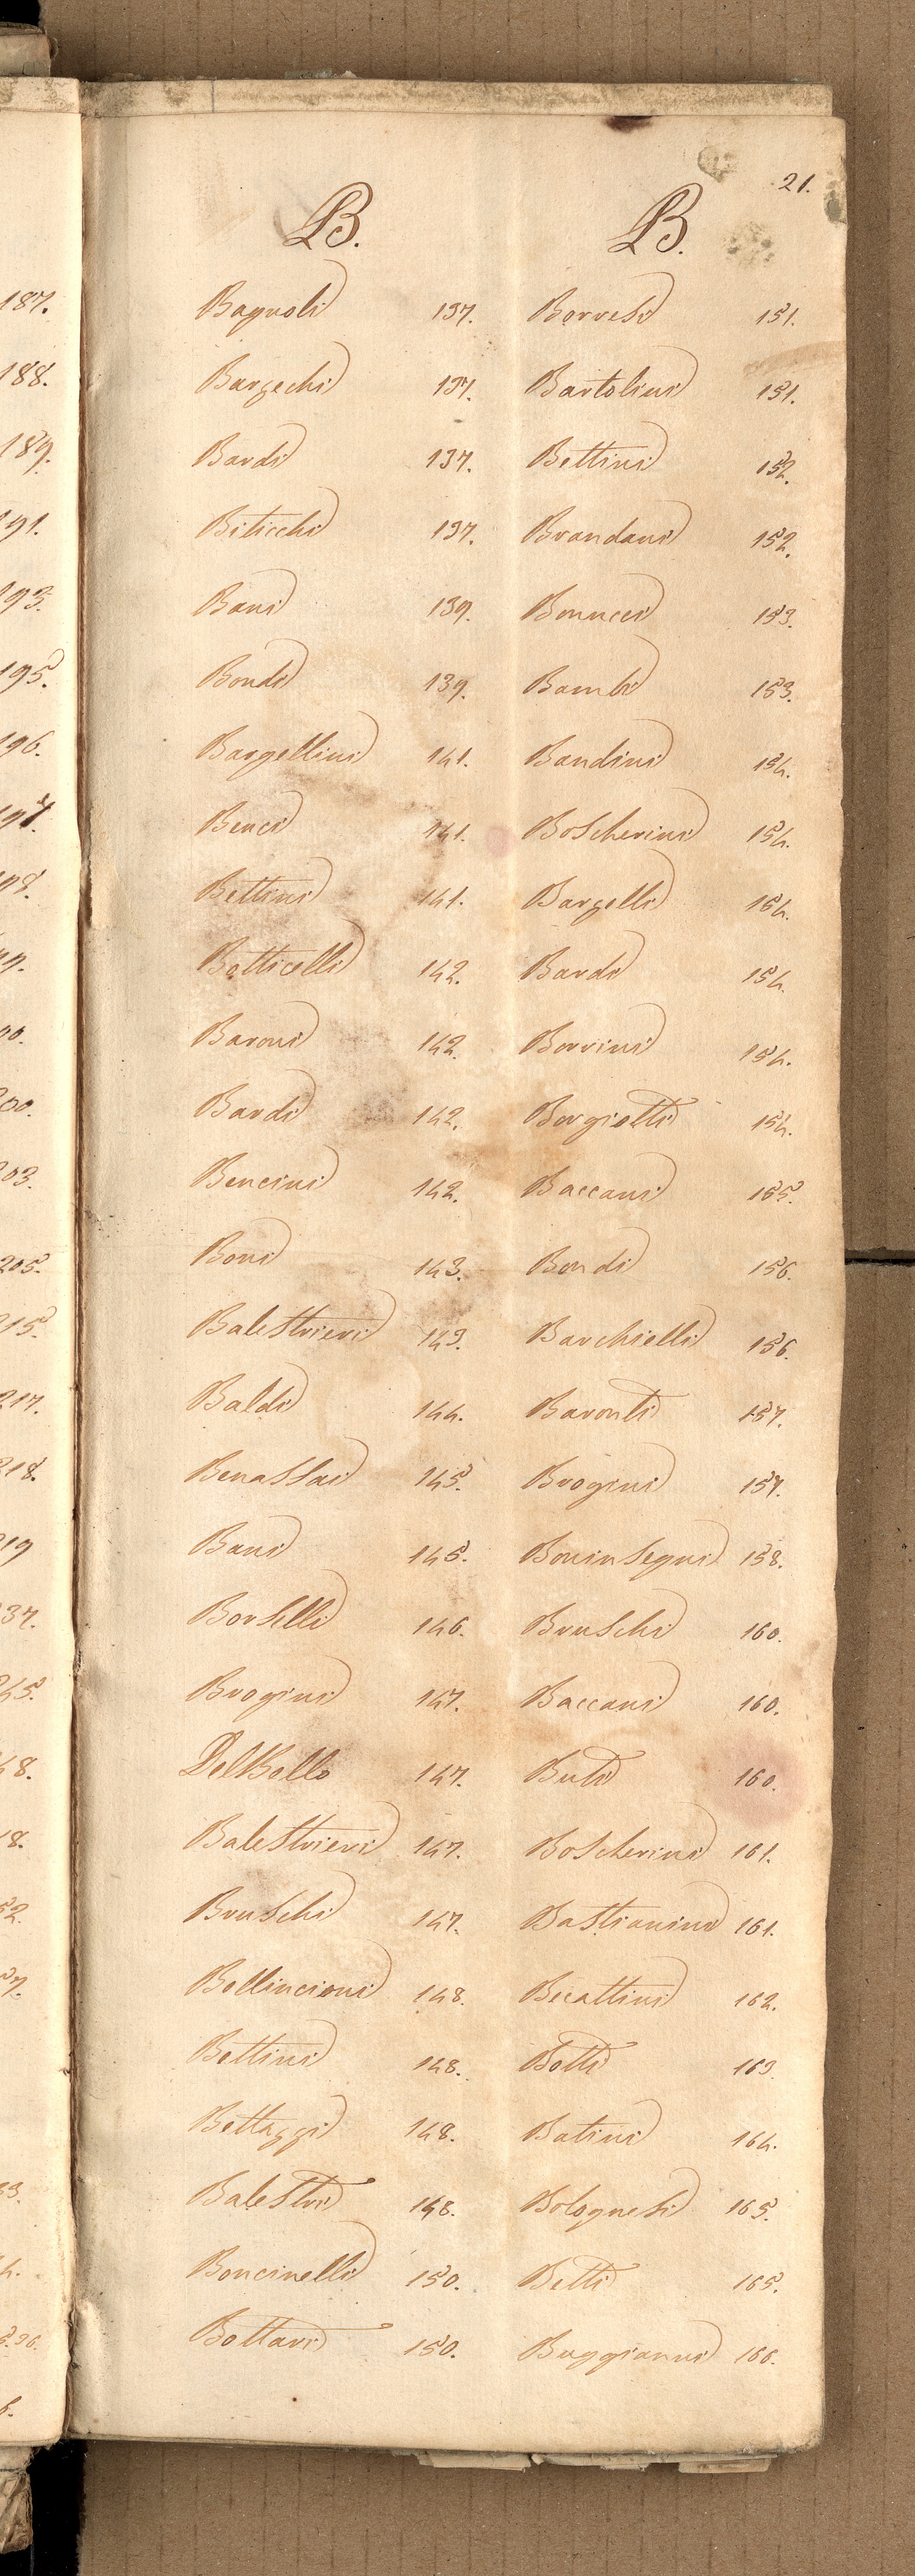 187.
188.
189.
191.
193.
195.
196.
21.
B.
Bagnoli 137.
Bargechi 137.
Bardi 137.
Biticchi 137.
Bani 139.
Bondi 139.
Bargellini 141.
Benci 141.
Bettini 141.
Botticelli 142.
Baroni 142.
Bardi 142.
Bencini 142.
Boni 143.
Balestrieri 143.
Baldi 144.
Benassai 145.
Bani 145.
Borselli 146.
Brogini 147.
Del Bello 147.
Balestrieri 147.
Bruschi 147.
Bellincioni 148.
Bettini 148.
Bettazzi 148.
Balestri 148.
Boncinelli 150.
Bottari 150.
B.
Borresi 151.
Bartolini 151.
Bettini 152.
Brandani 152.
Bonucci 153.
Bambi 153.
Bandini 154.
Boscherini 154.
Bargelli 154.
Bardi 154.
Borrini 154.
Borgiotti 154.
Baccani 155.
Bondi 156.
Barchielli 156.
Baronti 157.
Brogini 157.
Boninsegni 158.
Bruschi 160.
Baccani 160.
Buti 160.
Boscherini 161.
Bastianini 161.
Becattini 162.
Botti 163.
Batini 164.
Bolognesi 165.
Betti 165.
Buggiani 166.